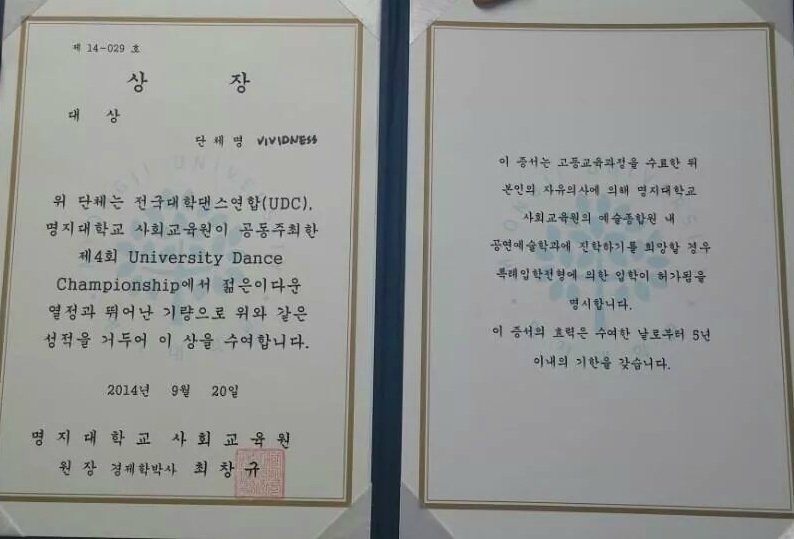 제 14-029 호
상 장
대 상
단체명 VIVIDNESS
위 단체는 전국대학댄스연합(UDC),
명지대학교 사회교육원이 공동주최한
제4회 University Dance
Championship에서 젊은이다운
열정과 뛰어난 기량으로 위와 같은
성적을 거두어 이 상을 수여합니다.
2014년 9월 20일
명지대학교 사회교육원
원장 경제학박사 최창규
이 증서는 고등교육과정을 수료한 뒤
본인의 자유의사에 의해 명지대학교
사회교육원의 예술종합원 내
공연예술학과에 진학하기를 희망할 경우
특례입학전형에 의한 입학이 허가됨을
명시합니다.
이 증서의 효력은 수여한 날로부터 5년
이내의 기한을 갖습니다.